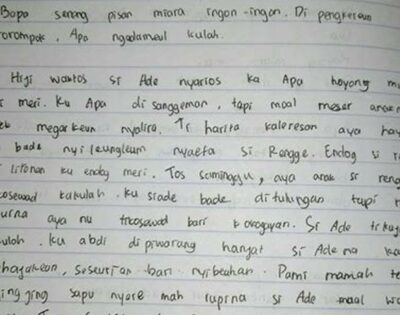 Bapa seneng pisan miara ingon-ingon. Di pengkereun
orompok. Apa ngadameul kulah.
Hiji waktos si Ade nyarios ka Apa hoyong m
meri. Ku Apa di sanggeman, tapi moal meser anak
megarkeun nyalira. Ti harita kaleresan aya hay
bade nyileungleum nyaeta si Rengge. Endog si r
lifonan ku endog meri. Tos saminggu, aya anak si reng
cosewad kakulah. Ku siade bade ditulungan tapi
urna aya nu ticosawad bari kokoyayan. Si Ade trkuj
uloh. Ku abdi dipiwarang hanjat si Ade na ka
hajakean, seseurian bari nyibeuhan. Pami mamah te
ngjing sapu nyere mah rupina si Ade maal wa